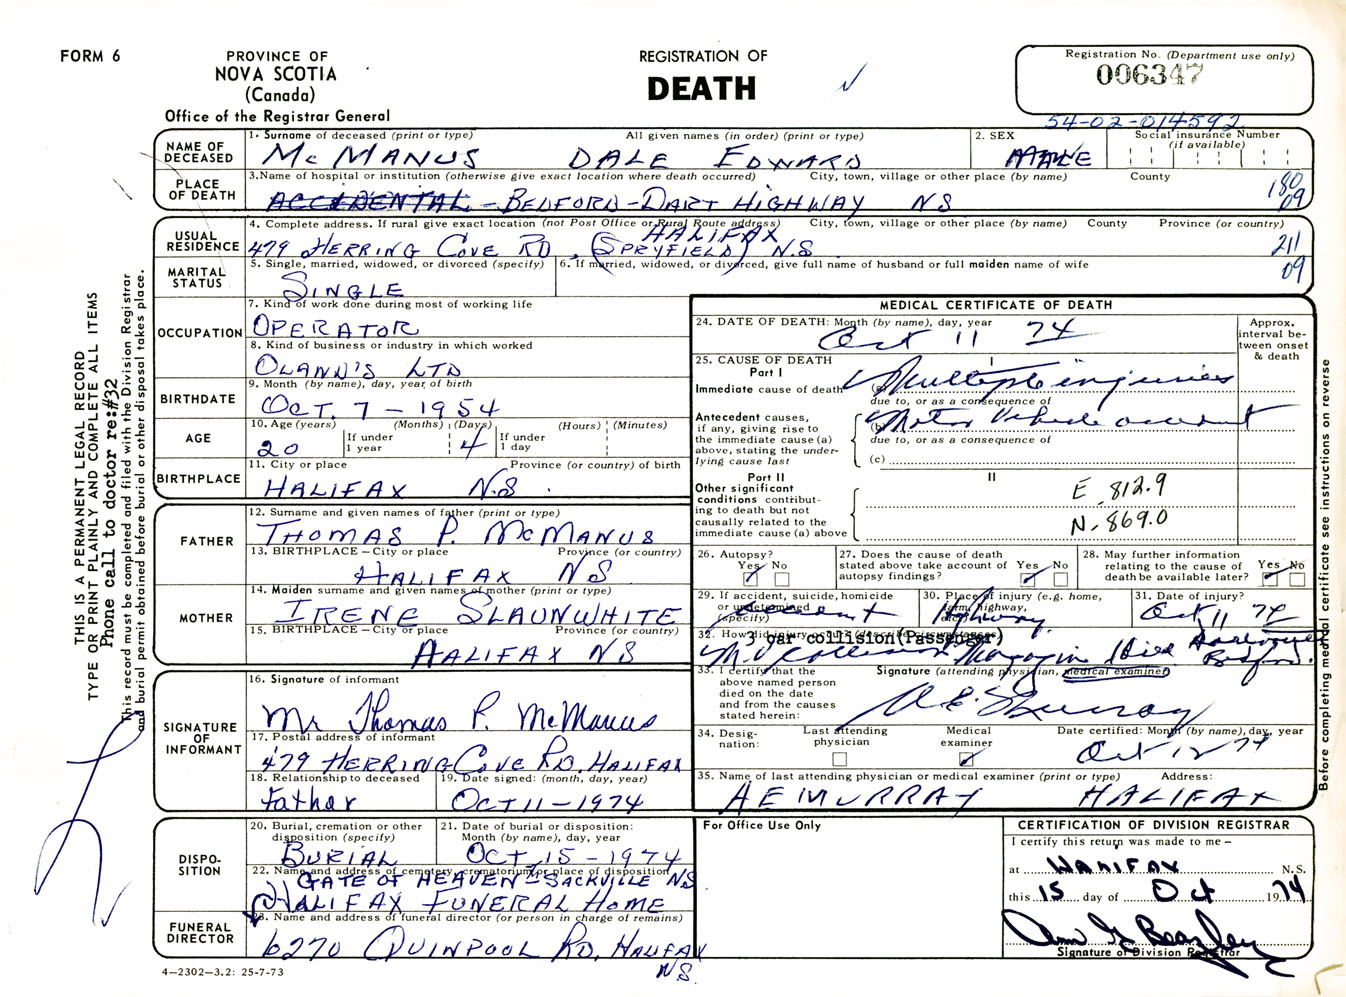 FORM 6
PROVINCE OF
NOVA SCOTIA
(Canada)
Office of the Registrar General
REGISTRATION OF
DEATH
Registration No. (Department use only)
006347
54-02-014592
NAME OF DECEASED
1. Surname of deceased (print or type) All given names (in order) (print or type)
McMANUS DALE EDWARD
2. SEX
MALE
Social insurance Number
(if available)
PLACE OF DEATH
3. Name of hospital or institution (otherwise give exact location where death occurred) City, town, village or other place (by name) County
ACCIDENTAL - BEDFORD-DART HIGHWAY NS
180
09
USUAL RESIDENCE
4. Complete address. If rural give exact location (not Post Office or Rural Route address) City, town, village or other place (by name) County Province (or country)
HALIFAX
479 HERRING COVE RD, (SPRYFIELD) N.S.
211
09
MARITAL STATUS
5. Single, married, widowed, or divorced (specify)
SINGLE
6. If married, widowed, or divorced, give full name of husband or full maiden name of wife
OCCUPATION
7. Kind of work done during most of working life
OPERATOR
8. Kind of business or industry in which worked
OLAND'S LTD
BIRTHDATE
9. Month (by name), day, year of birth
OCT. 7 - 1954
AGE
10. Age (years) (Months) (Days) (Hours) (Minutes)
If under 1 year
If under 1 day
20 4
BIRTHPLACE
11. City or place Province (or country) of birth
HALIFAX N.S.
FATHER
12. Surname and given names of father (print or type)
THOMAS P. McMANUS
13. BIRTHPLACE - City or place Province (or country)
HALIFAX NS
MOTHER
14. Maiden surname and given names of mother (print or type)
IRENE SLAUNWHITE
15. BIRTHPLACE - City or place Province (or country)
HALIFAX NS
SIGNATURE OF INFORMANT
16. Signature of informant
Mr Thomas P. McManus
17. Postal address of informant
479 HERRING COVE RD. HALIFAX
18. Relationship to deceased
Father
19. Date signed: (month, day, year)
OCT 11-1974
DISPO-
SITION
20. Burial, cremation or other disposition (specify)
BURIAL
21. Date of burial or disposition: Month (by name), day, year
OCT, 15 - 1974
22. Name and address of cemetery, crematorium or place of disposition
GATE OF HEAVEN - SACKVILLE NS
HALIFAX FUNERAL HOME
FUNERAL DIRECTOR
23. Name and address of funeral director (or person in charge of remains)
6270 QUINPOOL RD. HALIFAX
NS.
4-2302-3.2: 25-7-73
MEDICAL CERTIFICATE OF DEATH
24. DATE OF DEATH: Month (by name), day, year
Oct 11 74
Approx. interval between onset & death
25. CAUSE OF DEATH
Part I
I
Immediate cause of death (a) Multiple injuries
due to, or as a consequence of
Antecedent causes, if any, giving rise to the immediate cause (a) above, stating the underlying cause last
(b) Motor Vehicle accident
due to, or as a consequence of
(c)
Part II
II
Other significant conditions contributing to death but not causally related to the immediate cause (a) above
E 812.9
N-869.0
26. Autopsy?
Yes No
27. Does the cause of death stated above take account of autopsy findings?
Yes No
28. May further information relating to the cause of death be available later?
Yes No
29. If accident, suicide, homicide or undetermined (specify)
accident
30. Place of injury (e.g. home, farm, highway,
Highway
31. Date of injury?
Oct 11 74
32. How did injury occur? (describe circumstances)
3 car collision (Passenger)
33. I certify that the above named person died on the date and from the causes stated herein:
Signature (attending physician, medical examiner)
34. Desig-
nation:
Last attending physician
Medical examiner
Date certified: Month (by name), day, year
Oct 12 74
35. Name of last attending physician or medical examiner (print or type) Address:
AE MURRAY HALIFAX
For Office Use Only
CERTIFICATION OF DIVISION REGISTRAR
I certify this return was made to me -
at HALIFAX N.S.
this 15 day of Oct 1974
Signature of Division Registrar
THIS IS A PERMANENT LEGAL RECORD
TYPE OR PRINT PLAINLY AND COMPLETE ALL ITEMS
Phone call to doctor re:#32
This record must be completed and filed with the Division Registrar
and burial permit obtained before burial or other disposal takes place.
Before completing medical certificate see instructions on reverse